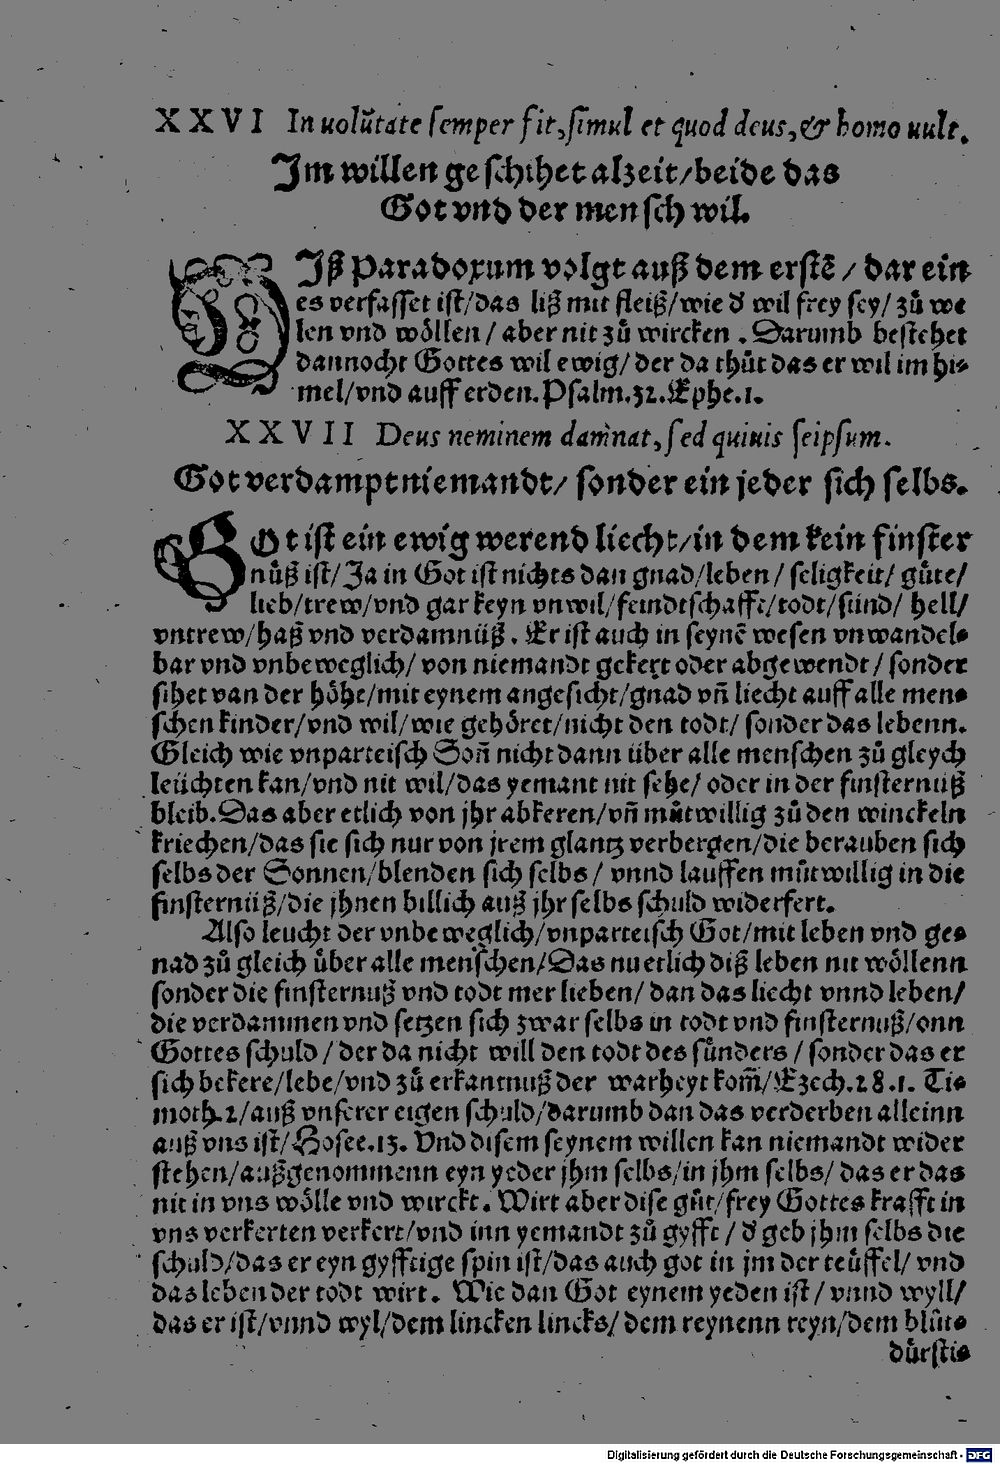 XXVI In uolũtate semper fit, simul et quod deus, & homo uult.
Im willen geschihet alzeit/beide das
Got vnd der mensch wil.
DIß Paradoxum volgt auß dem erstẽ / dar ein
es verfasset ist/das liß mit fleiß/wie d̕ wil frey sey/ zů we
len vnd wöllen / aber nit zů wircken . Darumb bestehet
dannocht Gottes wil ewig/ der da thůt das er wil im hi-
mel/vnd auff erden. Psalm.32. Ephe.1.
XXVII Deus neminem dam̃nat, sed quiuis seipsum.
Got verdampt niemandt/ sonder ein jeder sich selbs.
GOt ist ein ewig werend liecht/in dem kein finster
nüß ist/Ja in Got ist nichts dan gnad/leben / seligkeit/ güte/
lieb/trew/vnd gar keyn vnwil/feindtschafft/todt/sünd/ hell/
vntrew/haß vnd verdamnüß . Er ist auch in seynẽ wesen vnwandel-
bar vnd vnbeweglich/ von niemandt gekert oder abgewendt / sonder
sihet van der höhe/mit eynem angesicht/gnad vñ liecht auff alle men-
schen kinder/vnd wil/wie gehöret/nicht den todt/ sonder das lebenn.
Gleich wie vnparteisch Soñ nicht dann über alle menschen zů gleych
leüchten kan/vnd nit wil/das yemant nit sehe/ oder in der finsternuß
bleib. Das aber etlich von jhr abkeren/vñ můtwillig zů den winckeln
kriechen/das sie sich nur von jrem glantz verbergen/die berauben sich
selbs der Sonnen/blenden sich selbs / vnnd lauffen můtwillig in die
finsternüß/die jhnen billich auß jhr selbs schuld widerfert.
Also leucht der vnbeweglich/vnparteisch Got/mit leben vnd ge-
nad zů gleich über alle menschen/Das nu etlich diß leben nit wöllenn
sonder die finsternuß vnd todt mer lieben/ dan das liecht vnnd leben/
die verdammen vnd setzen sich zwar selbs in todt vnd finsternuß/onn
Gottes schuld / der da nicht will den todt des sünders / sonder das er
sich bekere/lebe/vnd zů erkantnuß der warheyt kom̃/Ezech.18.1. Ti-
moth.2/auß vnserer eigen schuld/darumb dan das verderben alleinn
auß vns ist/Hosee.13. Vnd disem seynem willen kan niemandt wider
stehen/außgenommenn eyn yeder jhm selbs/in jhm selbs/ das er das
nit in vns wölle vnd wirckt. Wirt aber dise gůt/frey Gottes krafft in
vns verkerten verkert/vnd inn yemandt zů gyfft / d̕ geb jhm selbs die
schuld/das er eyn gyfftige spin ist/das auch got in jm der teüffel/ vnd
das leben der todt wirt. Wie dan Got eynem yeden ist / vnnd wyll/
das er ist/vnnd wyl/dem lincken lincks/ dem reynenn reyn/dem blůt-
dürstig
Digitalisierung gefördert durch die Deutsche Forschungsgemeinschaft - DFG